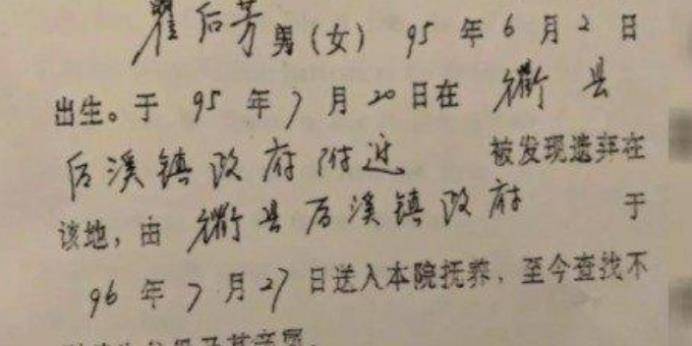 瞿后芳男(女) 95年6月2日
出生。于 95年7月20日在 衢县
后溪镇政府附近 被发现遗弃在
该地，由 衢县后溪镇政府 于
96年7月27日送入本院抚养，至今查找不